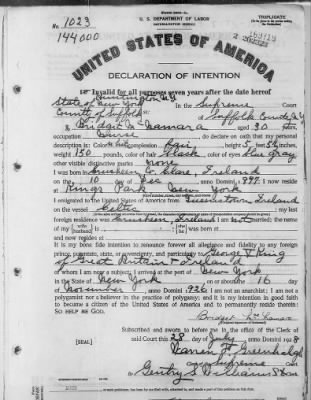 No. 1023
144000
U. S. DEPARTMENT OF LABOR
NATURALIZATION SERVICE
TRIPLICATE
UNITED STATES OF AMERICA
DECLARATION OF INTENTION
Invalid for all purposes seven years after the date hereof
Huntington N.Y.
State of New York
In the Supreme Court
County of Suffolk
of Suffolk County N.Y.
I, Bridget McNamara, aged 30 years,
occupation Nurse, do declare on oath that my personal
description is: Color White, complexion Fair, height 5 feet 5½ inches,
weight 150 pounds, color of hair Black, color of eyes Blue Gray
other visible distinctive marks none
I was born in Ireland
on the 10 day of Dec, anno Domini 1897; I now reside
at Kings Park New York
I emigrated to the United States of America from Queenstown Ireland
on the vessel Celtic; my last
foreign residence was Ireland; I am not married; the name of my
wife
husband is; she was born at
he
and now resides at
It is my bona fide intention to renounce forever all allegiance and fidelity to any foreign
prince, potentate, state, or sovereignty, and particularly to George V King
of Great Britain & Ireland
of whom I am now a subject; I arrived at the port of New York
in the State of New York, on or about the 16 day
of November, anno Domini 1926; I am not an anarchist; I am not a
polygamist nor a believer in the practice of polygamy; and it is my intention in good faith
to become a citizen of the United States of America and to permanently reside therein:
SO HELP ME GOD.
Bridget McNamara
(Original signature of declarant)
Subscribed and sworn to before me in the office of the Clerk of
said Court this 28 day of July, anno Domini 1928
[SEAL]
Warren F. Greenhalgh
Clerk of the Supreme Court.